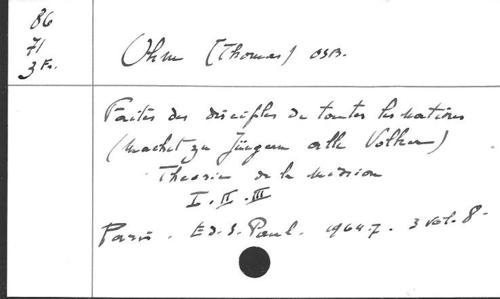 86
71
3 Fr.
Ohm [Thomas] OSB.
Faites des disciples de toutes les nations
(Machet zu Jüngern alle Volker)
Theorie de la mission
I. II. III
Paris. Ed. S. Paul. 1964-7. 3 vol. 8°